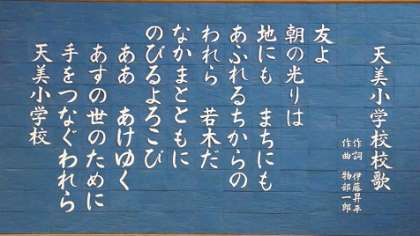 天美小学校校歌
作詞 伊藤昇平
作曲 物部一郎
友よ
朝の光りは
地にも まちにも
あふれるちからの
われら 若木だ
なかまとともに
のびるよろこび
ああ あけゆく
あすの世のために
手をつなぐわれら
天美小学校